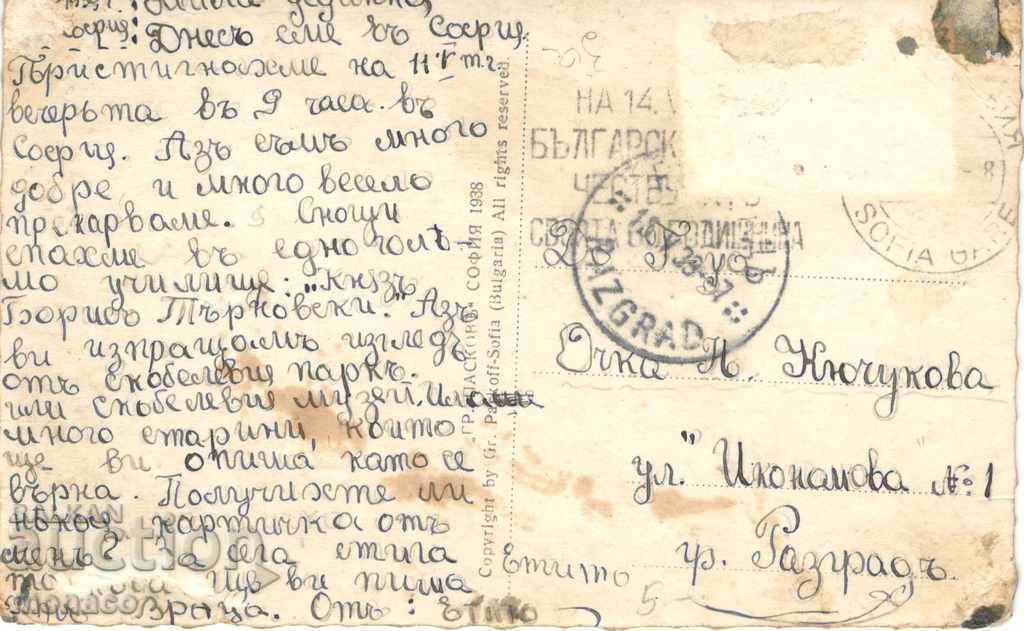 Днесъ сме въ София.
Пъристигнахме на 11 V т.г.
вечерьта въ 9 часа въ
София. Азъ съмъ много
добре и много весело
прекарваме. Снощи
спахме въ едно голѣ
мо училище: "Князъ
Борисъ Търновски". Азъ
ви изпращамъ изгледъ
отъ Скобелевия паркъ.
или Скобелевия музей. Има
много старини, които
ще ви опиша като се
върна. Получихте ли
някоя картичка отъ
менъ? За сега стига
ще ви пиша
Враца. Отъ: Етито
Copyright by Gr. Paskoff-Sofia (Bulgaria) All rights reserved.
"ГР. ПАСКОВЪ" СОФИЯ 1938
НА 14.
БЪЛГАРСК
SOFIA
RAZGRAD
До Г-жо
Очка П. Кючукова
ул. "Икономова № 1
гр. Разградъ
Етито
5
BALKAN
auction
monaco